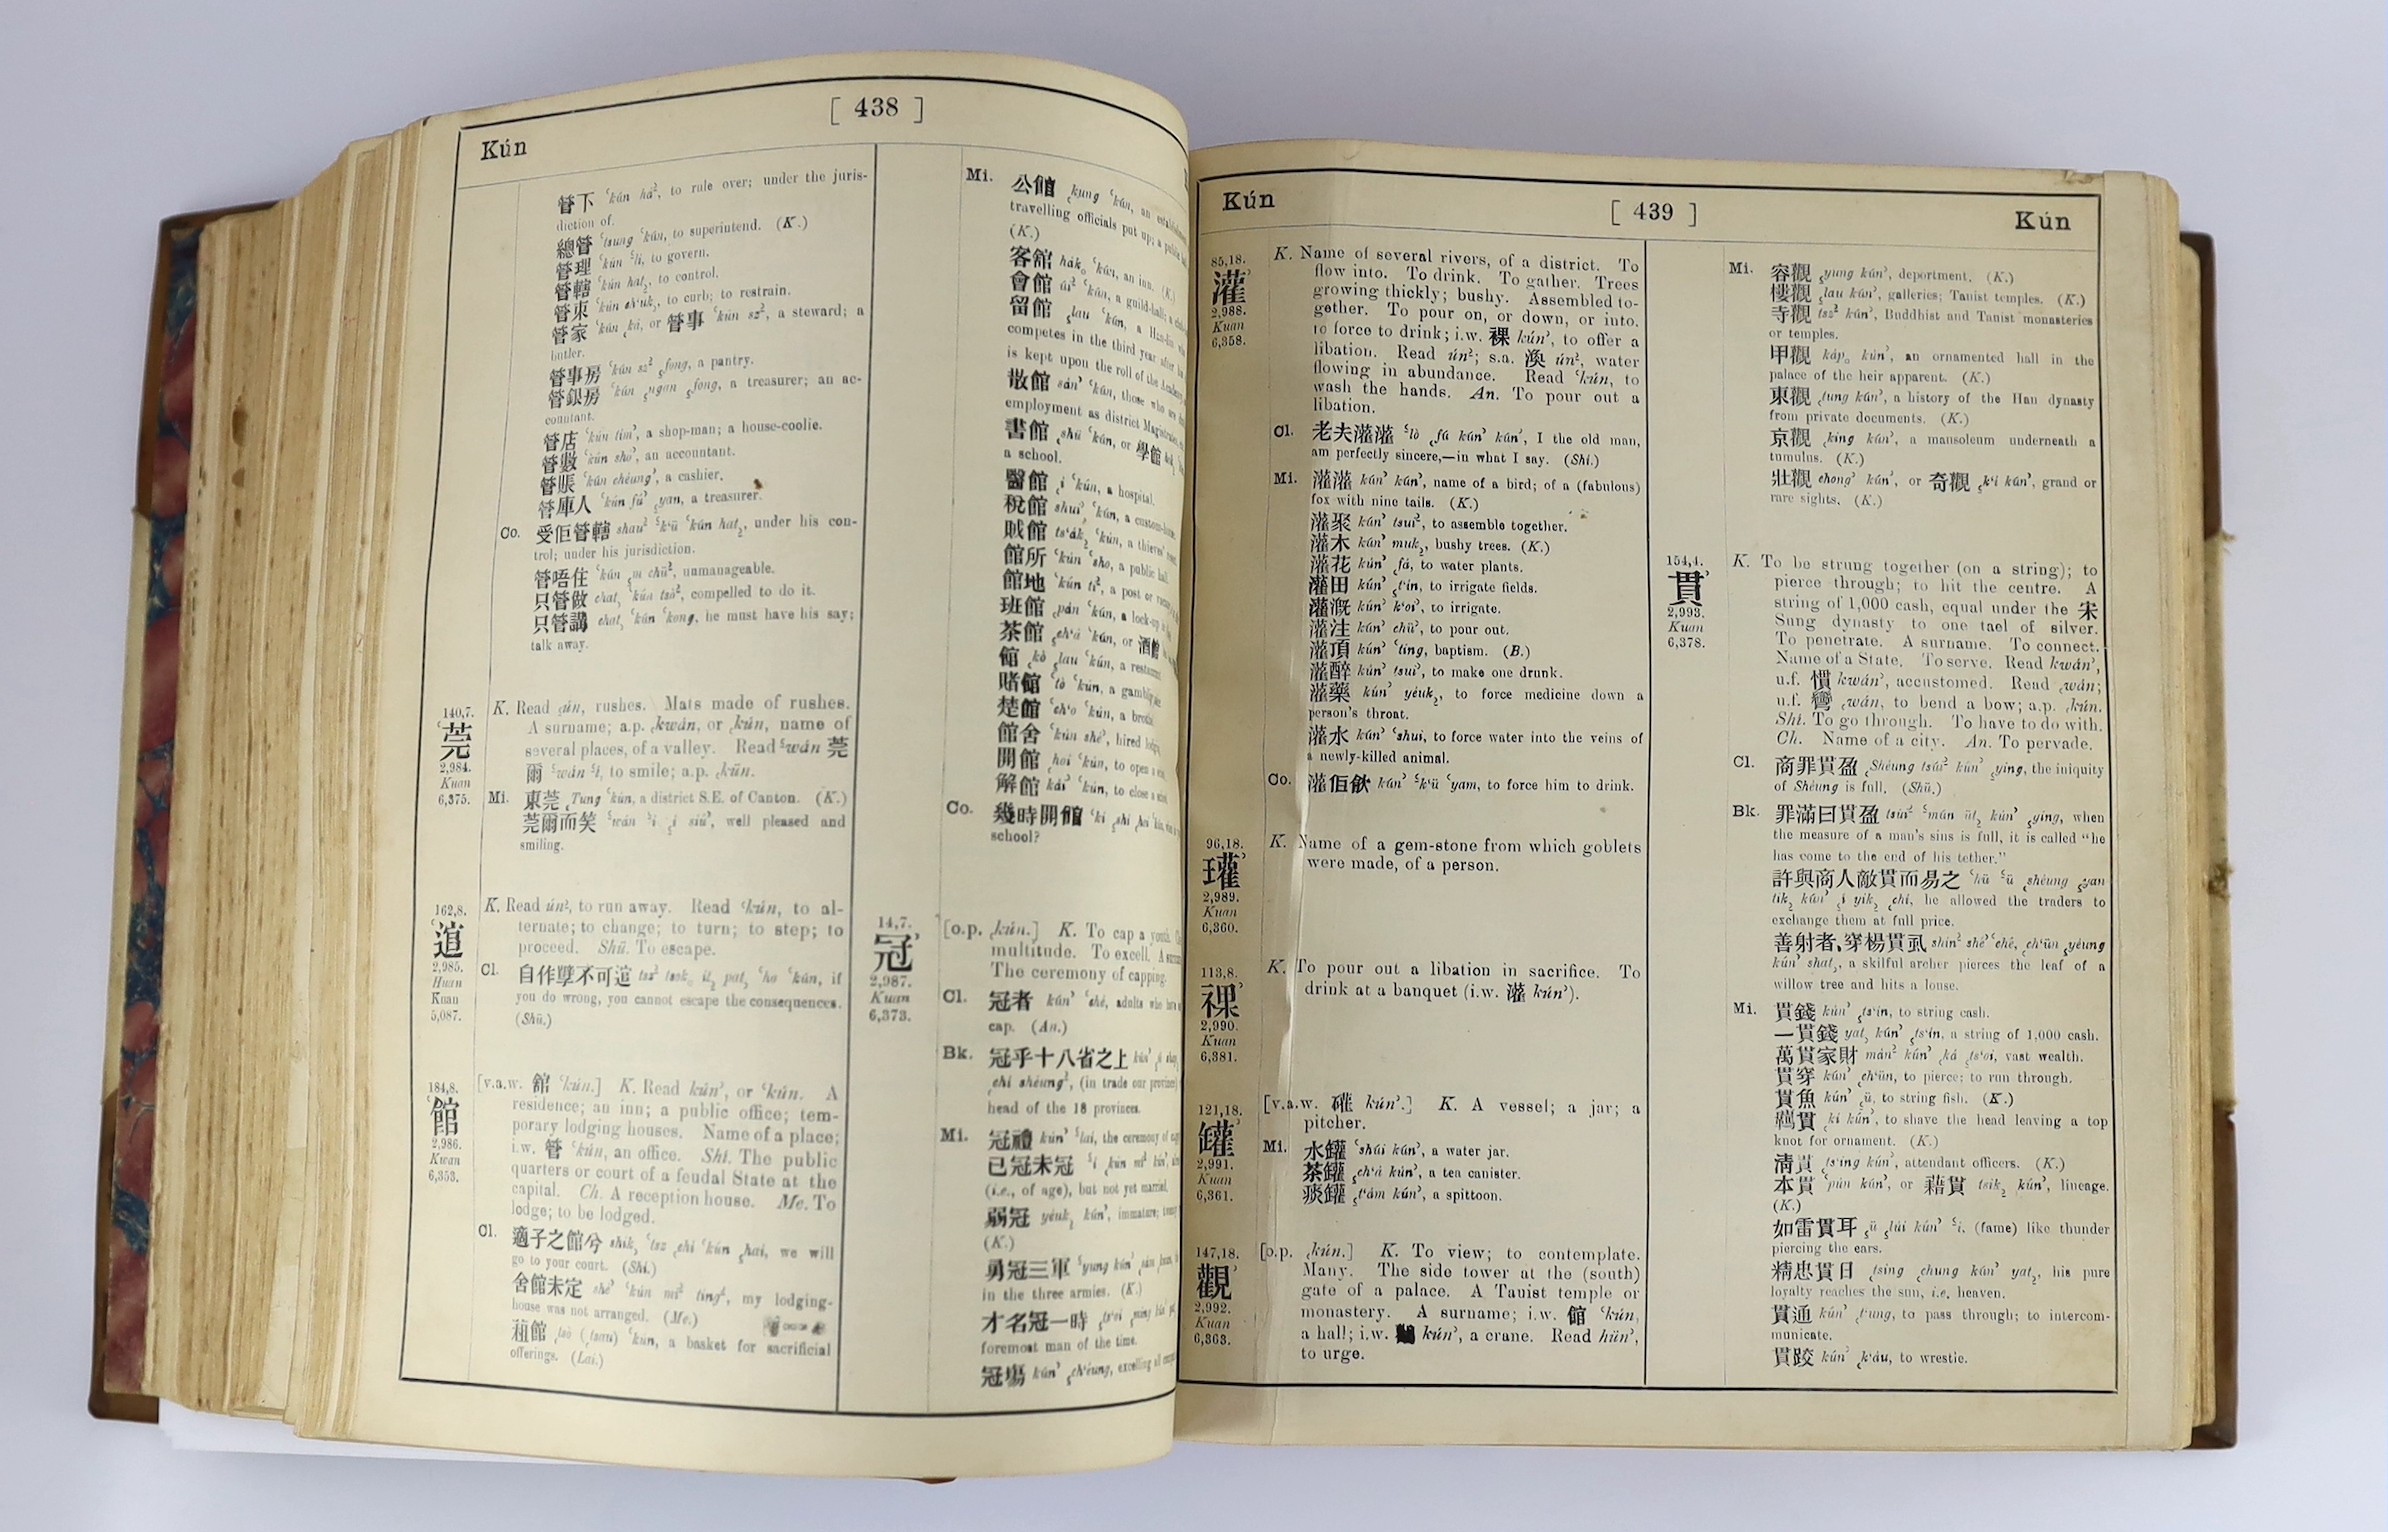 [ 438 ]
Kún
管下 ʿkún há², to rule over; under the juris-
diction of.
總管 ʿtsung ʿkún, to superintend. (K.)
管理 ʿkún ʿli, to govern.
管轄 ʿkún hat, to control.
管束 ʿkún chʻuk, to curb; to restrain.
管家 ʿkún ká, or 管事 ʿkún sz², a steward; a
butler.
管事房 ʿkún sz² fong, a pantry.
管銀房 ʿkún ngan fong, a treasurer; an ac-
countant.
管店 ʿkún tím', a shop-man; a house-coolie.
管數 ʿkún sho', an accountant.
管賬 ʿkún chéung', a cashier.
管庫人 ʿkún fú' yan, a treasurer.
Co. 受佢管轄 shau² ʿkʻü ʿkún hat, under his con-
trol; under his jurisdiction.
管唔住 ʿkún m chü², unmanageable.
只管做 chat ʿkún tsò², compelled to do it.
只管講 chat ʿkún ʿkong, he must have his say;
talk away.
140,7.
莞
2,984.
Kuan
6,375.
K. Read ún, rushes. Mats made of rushes.
A surname; a.p. kwán, or kún, name of
several places, of a valley. Read ʿwán 莞
爾 ʿwán ʿi, to smile; a.p. kün.
Mi. 東莞 Tung ʿkún, a district S.E. of Canton. (K.)
莞爾而笑 ʿwán ʿi i siú', well pleased and
smiling.
162,8.
逭
2,985.
Huan
Kuan
5,087.
K. Read ún², to run away. Read ʿkún, to al-
ternate; to change; to turn; to step; to
proceed. Shü. To escape.
Cl. 自作孼不可逭 tsz² tsok út pat ʿho ʿkún, if
you do wrong, you cannot escape the consequences.
(Shü.)
184,8.
館
2,986.
Kwan
6,353.
[v.a.w. 舘 ʿkún.] K. Read kún', or ʿkún. A
residence; an inn; a public office; tem-
porary lodging houses. Name of a place;
i.w. 管 ʿkún, an office. Shi. The public
quarters or court of a feudal State at the
capital. Ch. A reception house. Me. To
lodge; to be lodged.
Cl. 適子之館兮 shik ʿtsz chi ʿkún hai, we will
go to your court. (Shi.)
舍館未定 shé' ʿkún mi² ting², my lodging-
house was not arranged. (Me.)
蒩館 tsò (tsau) ʿkún, a basket for sacrificial
offerings. (Lai.)
Mi. 公館 kung ʿkún, an
travelling officials put up; a
(K.)
客館 hák ʿkún, an inn. (K.)
會館 úi² ʿkún, a guild-hall; a
留館 lau ʿkún, a Han-lin
competes in the third year after
is kept upon the roll of the
散館 sán' ʿkún, those who
employment as district Magistrates,
書館 shü ʿkún, or 學館
a school.
醫館 i ʿkún, a hospital.
稅館 shui' ʿkún, a
賊館 tsʻák ʿkún, a thieves'
館所 ʿkún ʿsho, a public hall.
館地 ʿkún ti², a post or
班館 pán ʿkún, a lock-up
茶館 chʻá ʿkún, or 酒館
館 kò lau ʿkún, a restaurant.
賭館 ʿtò ʿkún, a gambling
楚館 ʿchʻo ʿkún, a
館舍 ʿkún shé', hired
開館 hoi ʿkún, to open a
解館 kái' ʿkún, to close a
Co. 幾時開館 ʿki shi hoi ʿkún,
school?
14,7.
冠
2,987.
Kuan
6,373.
[o.p. kún.] K. To cap a youth.
multitude. To excell. A
The ceremony of capping.
Cl. 冠者 kún' ʿché, adults who
cap. (An.)
Bk. 冠乎十八省之上 kún'
chi shéung², (in trade our province)
head of the 18 provinces.
Mi. 冠禮 kún' ʿlai, the ceremony of
已冠未冠 ʿi kún mi² kún',
(i.e., of age), but not yet married.
弱冠 yéuk kún', immature;
(K.)
勇冠三軍 ʿyung kún' sám
in the three armies. (K.)
才名冠一時 tsʻoi ming kún'
foremost man of the time.
冠塲 kún' chʻéung, excelling all
Kún
[ 439 ]
Kún
85,18.
灌
2,988.
Kuan
6,358.
K. Name of several rivers, of a district. To
flow into. To drink. To gather. Trees
growing thickly; bushy. Assembled to-
gether. To pour on, or down, or into.
to force to drink; i.w. 祼 kún', to offer a
libation. Read ún²; s.a. 渙 ún², water
flowing in abundance. Read ʿkún, to
wash the hands. An. To pour out a
libation.
Cl. 老夫灌灌 ʿlò fú kún' kún', I the old man,
am perfectly sincere,—in what I say. (Shi.)
Mi. 灌灌 kún' kún', name of a bird; of a (fabulous)
fox with nine tails. (K.)
灌聚 kún' tsui², to assemble together.
灌木 kún' muk, bushy trees. (K.)
灌花 kún' fá, to water plants.
灌田 kún' tʻin, to irrigate fields.
灌溉 kún' kʻoi', to irrigate.
灌注 kún' chü', to pour out.
灌頂 kún' ʿting, baptism. (B.)
灌醉 kún' tsui', to make one drunk.
灌藥 kún' yéuk, to force medicine down a
person's throat.
灌水 kún' ʿshui, to force water into the veins of
a newly-killed animal.
Co. 灌佢飲 kún' ʿkʻü ʿyam, to force him to drink.
96,18.
瓘
2,989.
Kuan
6,360.
K. Name of a gem-stone from which goblets
were made, of a person.
113,8.
祼
2,990.
Kuan
6,381.
K. To pour out a libation in sacrifice. To
drink at a banquet (i.w. 灌 kún').
121,18.
罐
2,991.
Kuan
6,361.
[v.a.w. 礶 kún'.] K. A vessel; a jar; a
pitcher.
Mi. 水罐 ʿshúi kún', a water jar.
茶罐 chʻá kún', a tea canister.
痰罐 tʻám kún', a spittoon.
147,18.
觀
2,992.
Kuan
6,363.
[o.p. kún.] K. To view; to contemplate.
Many. The side tower at the (south)
gate of a palace. A Tauist temple or
monastery. A surname; i.w. 館 ʿkún,
a hall; i.w. kún', a crane. Read hün',
to urge.
Mi. 容觀 yung kún', deportment. (K.)
樓觀 lau kún', galleries; Tauist temples. (K.)
寺觀 tsz² kún', Buddhist and Tauist monasteries
or temples.
甲觀 káp kún', an ornamented hall in the
palace of the heir apparent. (K.)
東觀 tung kún', a history of the Han dynasty
from private documents. (K.)
京觀 king kún', a mausoleum underneath a
tumulus. (K.)
壯觀 chong' kún', or 奇觀 kʻi kún', grand or
rare sights. (K.)
154,4.
貫
2,993.
Kuan
6,378.
K. To be strung together (on a string); to
pierce through; to hit the centre. A
string of 1,000 cash, equal under the 宋
Sung dynasty to one tael of silver.
To penetrate. A surname. To connect.
Name of a State. To serve. Read kwán',
u.f. 慣 kwán', accustomed. Read wán;
u.f. 彎 wán, to bend a bow; a.p. kún.
Shi. To go through. To have to do with.
Ch. Name of a city. An. To pervade.
Cl. 商罪貫盈 Shéung tsúi² kún' ying, the iniquity
of Shéung is full. (Shü.)
Bk. 罪滿曰貫盈 tsúi² ʿmún üt kún' ying, when
the measure of a man's sins is full, it is called "he
has come to the end of his tether."
許與商人敵貫而易之 ʿhü ʿü shéung yan
tik kún' i yik chi, he allowed the traders to
exchange them at full price.
善射者,穿楊貫虱 shin² shé² ʿché, chʻün yéung
kún' shat, a skilful archer pierces the leaf of a
willow tree and hits a louse.
Mi. 貫錢 kún' tsʻin, to string cash.
一貫錢 yat kún' tsʻin, a string of 1,000 cash.
萬貫家財 mán² kún' ká tsʻoi, vast wealth.
貫穿 kún' chʻün, to pierce; to run through.
貫魚 kún' ü, to string fish. (K.)
羈貫 ki kún', to shave the head leaving a top
knot for ornament. (K.)
清貫 tsʻing kún', attendant officers. (K.)
本貫 ʿpún kún', or 藉貫 tsik kún', lineage.
(K.)
如雷貫耳 ü lúi kún' ʿi, (fame) like thunder
piercing the ears.
精忠貫日 tsing chung kún' yat, his pure
loyalty reaches the sun, i.e. heaven.
貫通 kún' tʻung, to pass through; to intercom-
municate.
貫跤 kún' kʻáu, to wrestle.